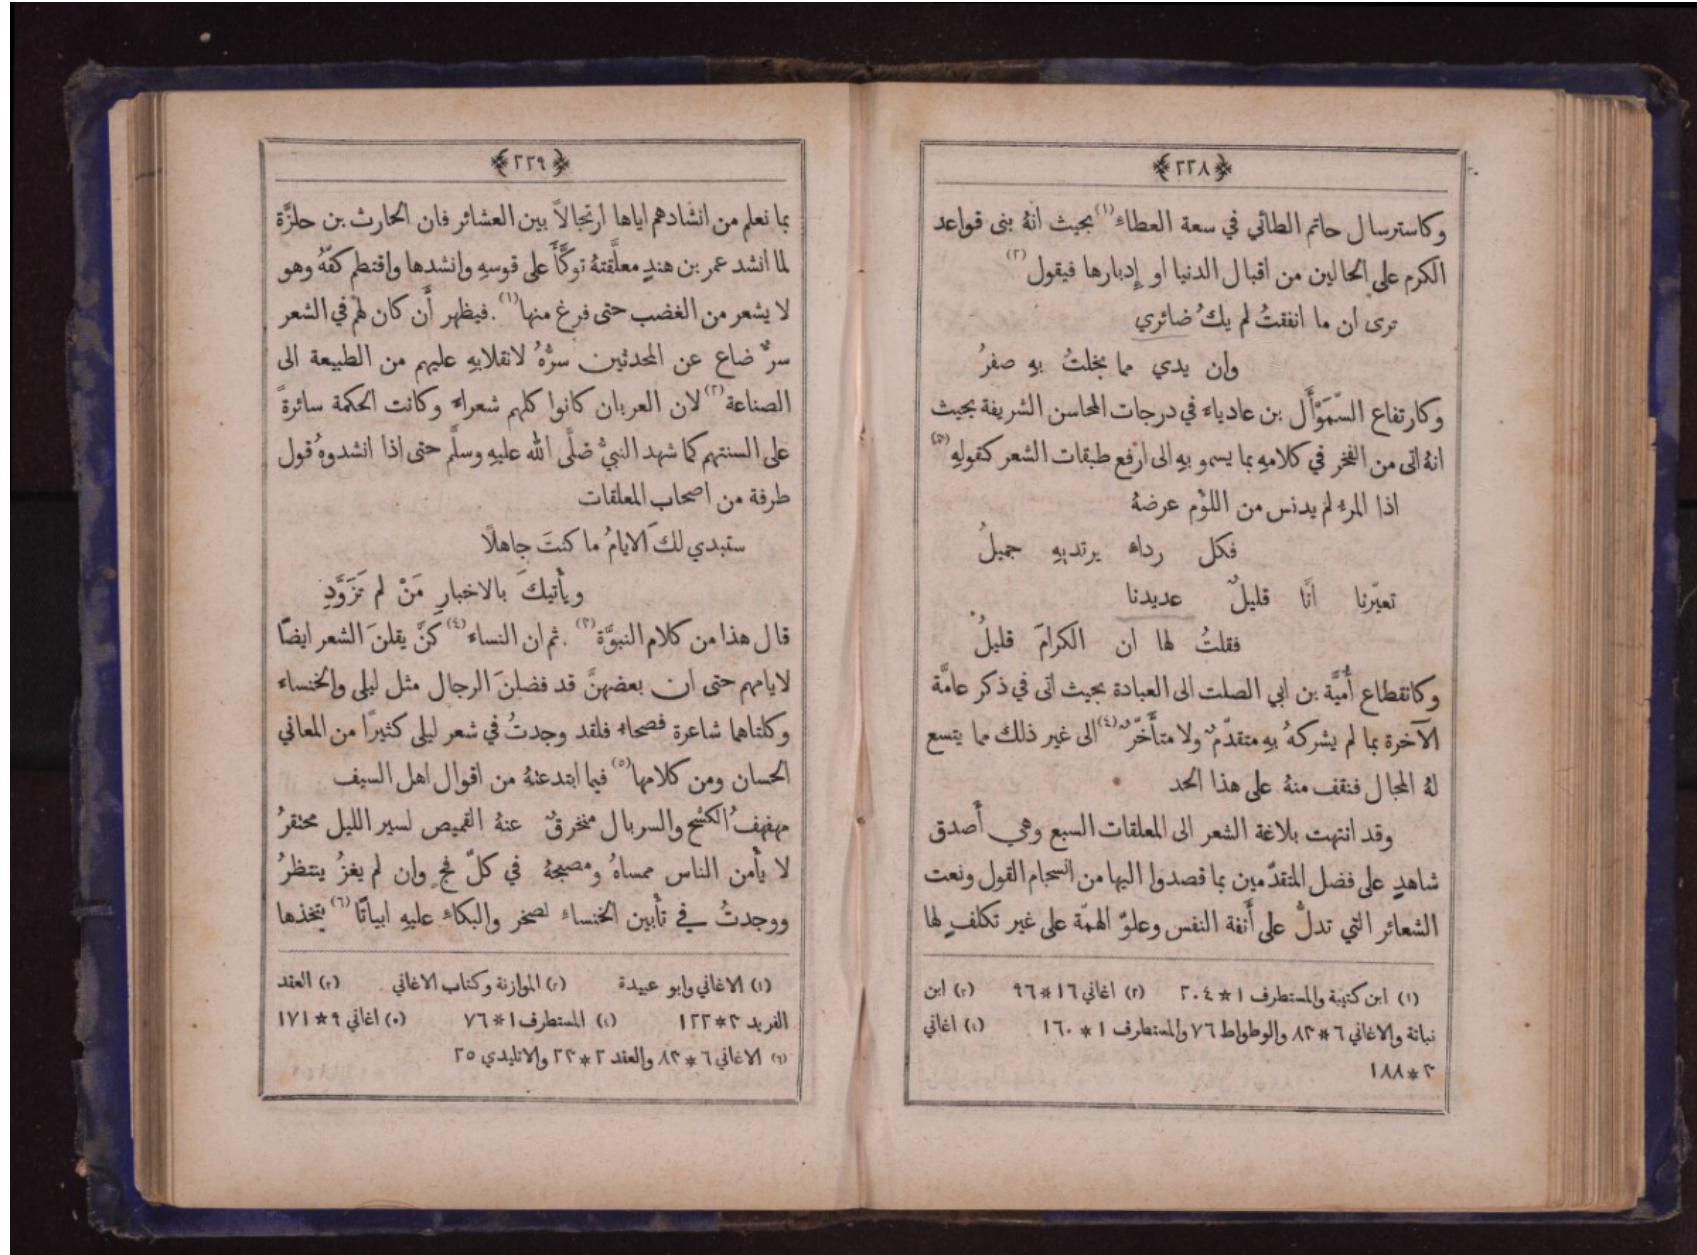 ﴿٢٢٨﴾
وكاسترسال حاتم الطائي في سعة العطاء (١) بحيث انهُ بنى قواعد
الكرم على الحالين من اقبال الدنيا او إِدبارها فيقول (٢)
ترى ان ما انفقتُ لم يكُ ضائري
وان يدي مما بخلتُ بهِ صفرُ
وكارتفاع السَّمَوْأَل بن عادياء في درجات المحاسن الشريفة بحيث
انهُ اتى من الفخر في كلامهِ بما يسمو بهِ الى ارفع طبقات الشعر كقولهِ (٣)
اذا المرء لم يدنس من اللؤْم عرضهُ
فكل رداء يرتديهِ جميلُ
تعيّرنا انَّا قليلٌ عديدنا
فقلتُ لها ان الكرامَ قليلُ
وكانقطاع أُميَّة بن ابي الصلت الى العبادة بحيث اتى في ذكر عامَّة
الآخرة بما لم يشركهُ بهِ متقدّمٌ ولا متأَخّرٌ (٤) الى غير ذلك مما يتسع
لهُ المجال فنقف منهُ على هذا الحد
وقد انتهت بلاغة الشعر الى المعلقات السبع وهي أَصدق
شاهدٍ على فضل المتقدّمين بما قصدوا اليها من انسجام القول ونعت
الشعائر التي تدلُّ على أَنفة النفس وعلوّ الهمّة على غير تكلفٍ لها
(١) ابن كتيبة والمستطرف ١*٢٠٤ (٢) اغاني ١٦*٩٦ (٣) ابن
نباتة والاغاني ٦*٨٣ والوطواط ٧٦ والمستطرف ١*١٦٠ (٤) اغاني
٣*١٨٨
﴿٢٢٩﴾
بما نعلم من انشادهم اياها ارتجالاً بين العشائر فان الحارث بن حلزَّة
لما انشد عمر بن هندٍ معلَّقتهُ توكَّأَ على قوسهِ وانشدها واقتطم كفّهُ وهو
لا يشعر من الغضب حتى فرغ منها (١). فيظهر أَن كان لهم في الشعر
سرٌّ ضاع عن المحدثين سرُّهُ لانقلابهِ عليهم من الطبيعة الى
الصناعة (٢) لان العربان كانوا كلهم شعراء وكانت الحكمة سائرةً
على السنتهم كما شهد النبيُّ صلَّى الله عليهِ وسلَّم حتى اذا انشدوهُ قول
طرفة من اصحاب المعلقات
ستبدي لكَ الايامُ ما كنتَ جاهلًا
ويأْتيكَ بالاخبارِ مَنْ لم تزَوَّدِ
قال هذا من كلام النبوَّة (٣). ثم ان النساء (٤) كنَّ يقلنَ الشعر ايضًا
لايامهم حتى ان بعضهنَّ قد فضلنَ الرجال مثل ليلى والخنساء
وكلتاهما شاعرة فصحاء فلقد وجدتُ في شعر ليلى كثيرًا من المعاني
الحسان ومن كلامها (٥) فيما ابتدعتهُ من اقوال اهل السيف
مهفهفُ الكشح والسربال منخرقٌ عنهُ القميص لسير الليل محتقرُ
لا يأمن الناس ممساهُ ومصبحهُ في كلّ فجٍ وان لم يغزُ ينتظرُ
ووجدتُ في تأبين الخنساء لصخر والبكاء عليهِ ابياتًا (٦) يتخذها
(١) الاغاني وابو عبيدة (٢) الموازنة وكتاب الاغاني (٣) العقد
الفريد ٣*١٢٢ (٤) المستطرف ١*٧٦ (٥) اغاني ٩*١٧١
(٦) الاغاني ٦*٨٣ والعقد ٢*٢٣ والاتليدي ٢٥